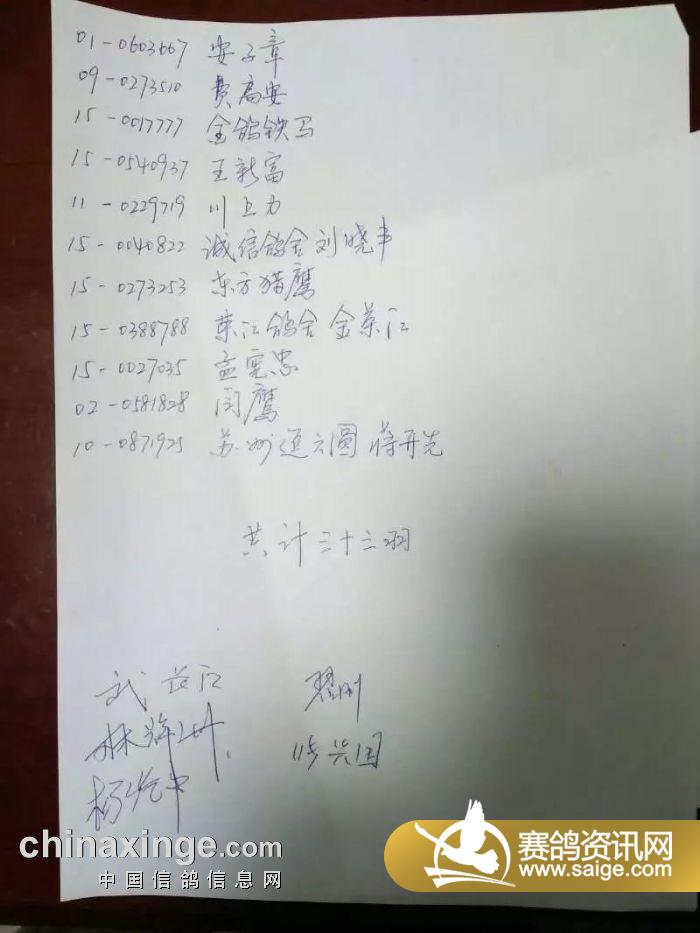 01-0603667 安子章
09-0273510 费高安
15-0017777 金鸽铁马
15-0540937 王新富
11-0229719 川上力
15-0040822 诚信鸽舍 刘晓丰
15-0273253 东方猎鹰
15-0388788 荣江鸽舍 金荣江
15-0027035 孟宪忠
02-0581828 闫鹰
10-0871925 苏州 方圆 蒋开先
共计三十三羽
武长江 翟刚
林
杨 兴国
chinaxinge.com
中国信鸽信息网
赛鸽资讯网
www.saige.com